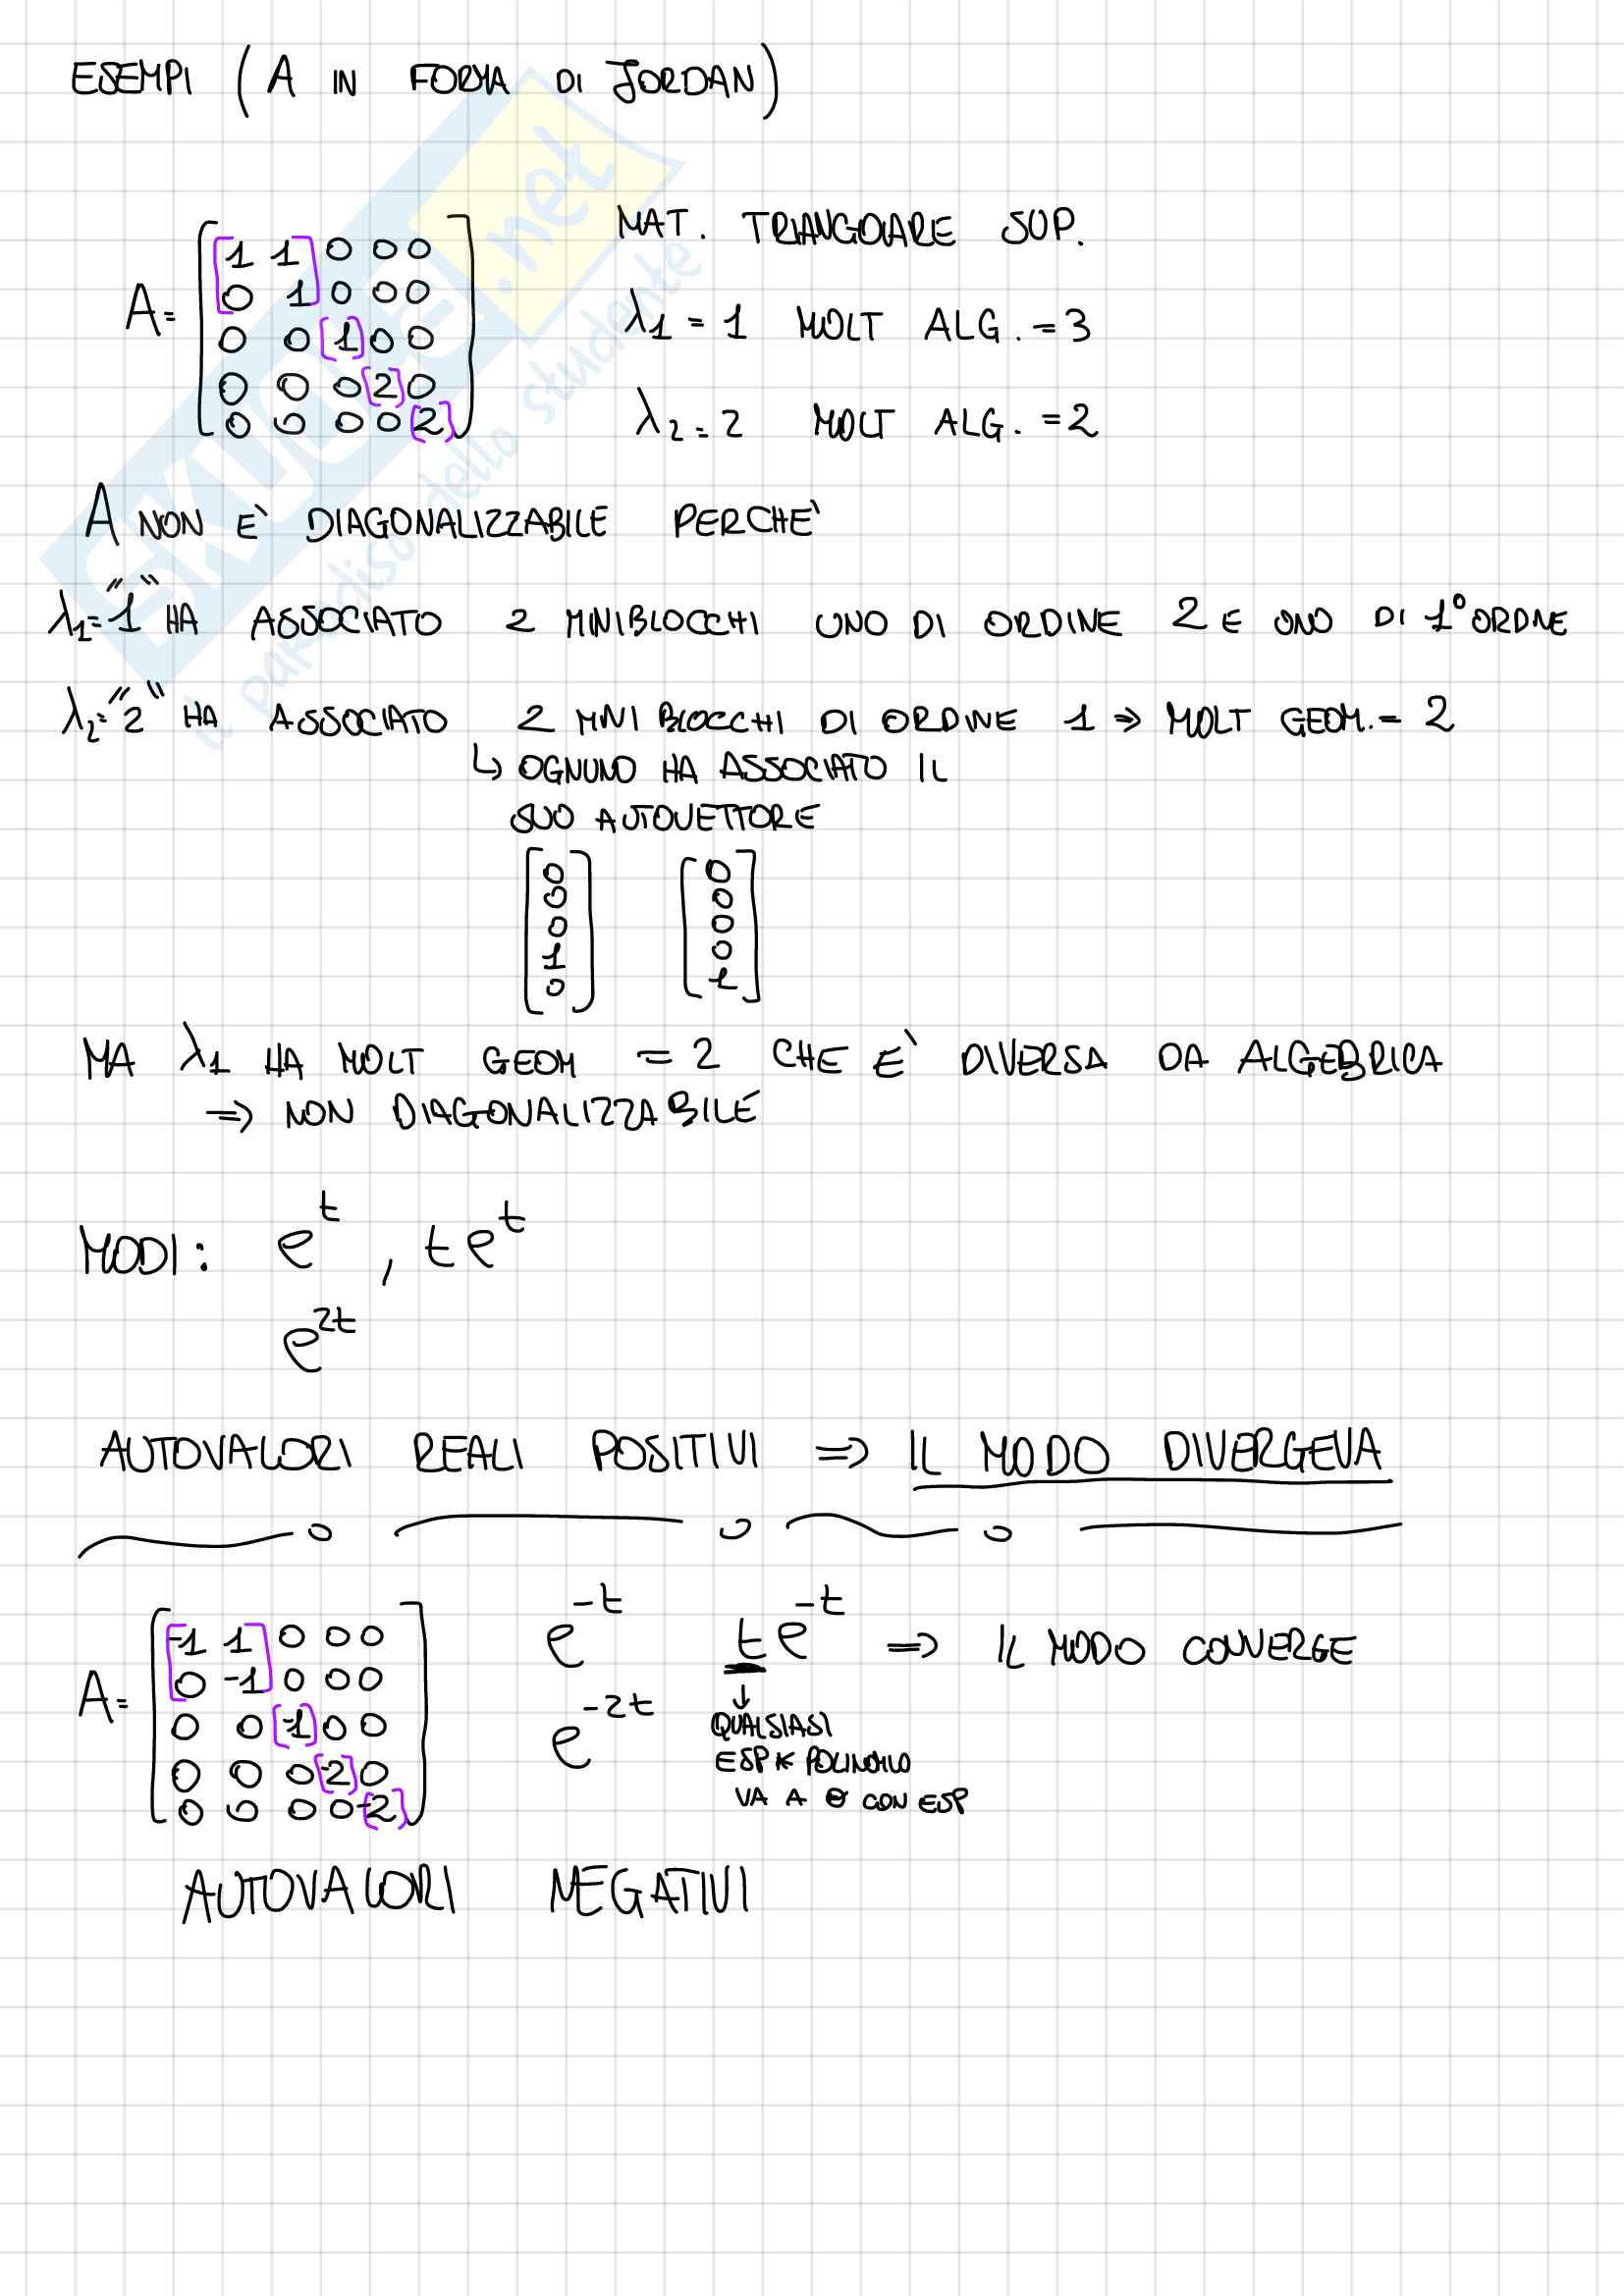 ESEMPI (A IN FORMA DI JORDAN)
MAT. TRIANGOLARE SUP.
A= [1 1 0 0 0
0 1 0 0 0
0 0 [1] 0 0
0 0 0 [2] 0
0 0 0 0 [2]]
λ1 = 1 MOLT ALG. = 3
λ2 = 2 MOLT ALG. = 2
A NON E' DIAGONALIZZABILE PERCHE'
λ1= "1" HA ASSOCIATO 2 MINIBLOCCHI UNO DI ORDINE 2 E UNO DI 1° ORDNE
λ2= "2" HA ASSOCIATO 2 MINI BLOCCHI DI ORDINE 1 ⇒ MOLT GEOM. = 2
↳ OGNUNO HA ASSOCIATO IL
SUO AUTOVETTORE
[0 0 0 1 0] [0 0 0 0 1]
MA λ1 HA MOLT GEOM = 2 CHE E' DIVERSA DA ALGEBRICA
⇒ NON DIAGONALIZZABILE
MODI: e^t , t e^t
e^2t
AUTOVALORI REALI POSITIVI ⇒ IL MODO DIVERGEVA
A= [-1 1 0 0 0
0 -1 0 0 0
0 0 [-1] 0 0
0 0 0 [-2] 0
0 0 0 0 [-2]]
e^-t t e^-t ⇒ IL MODO CONVERGE
e^-2t
↓
QUALSIASI
ESP * POLINOMIO
VA A 0 CON ESP
AUTOVALORI NEGATIVI
SKUOLA.net
il paradiso dello studente